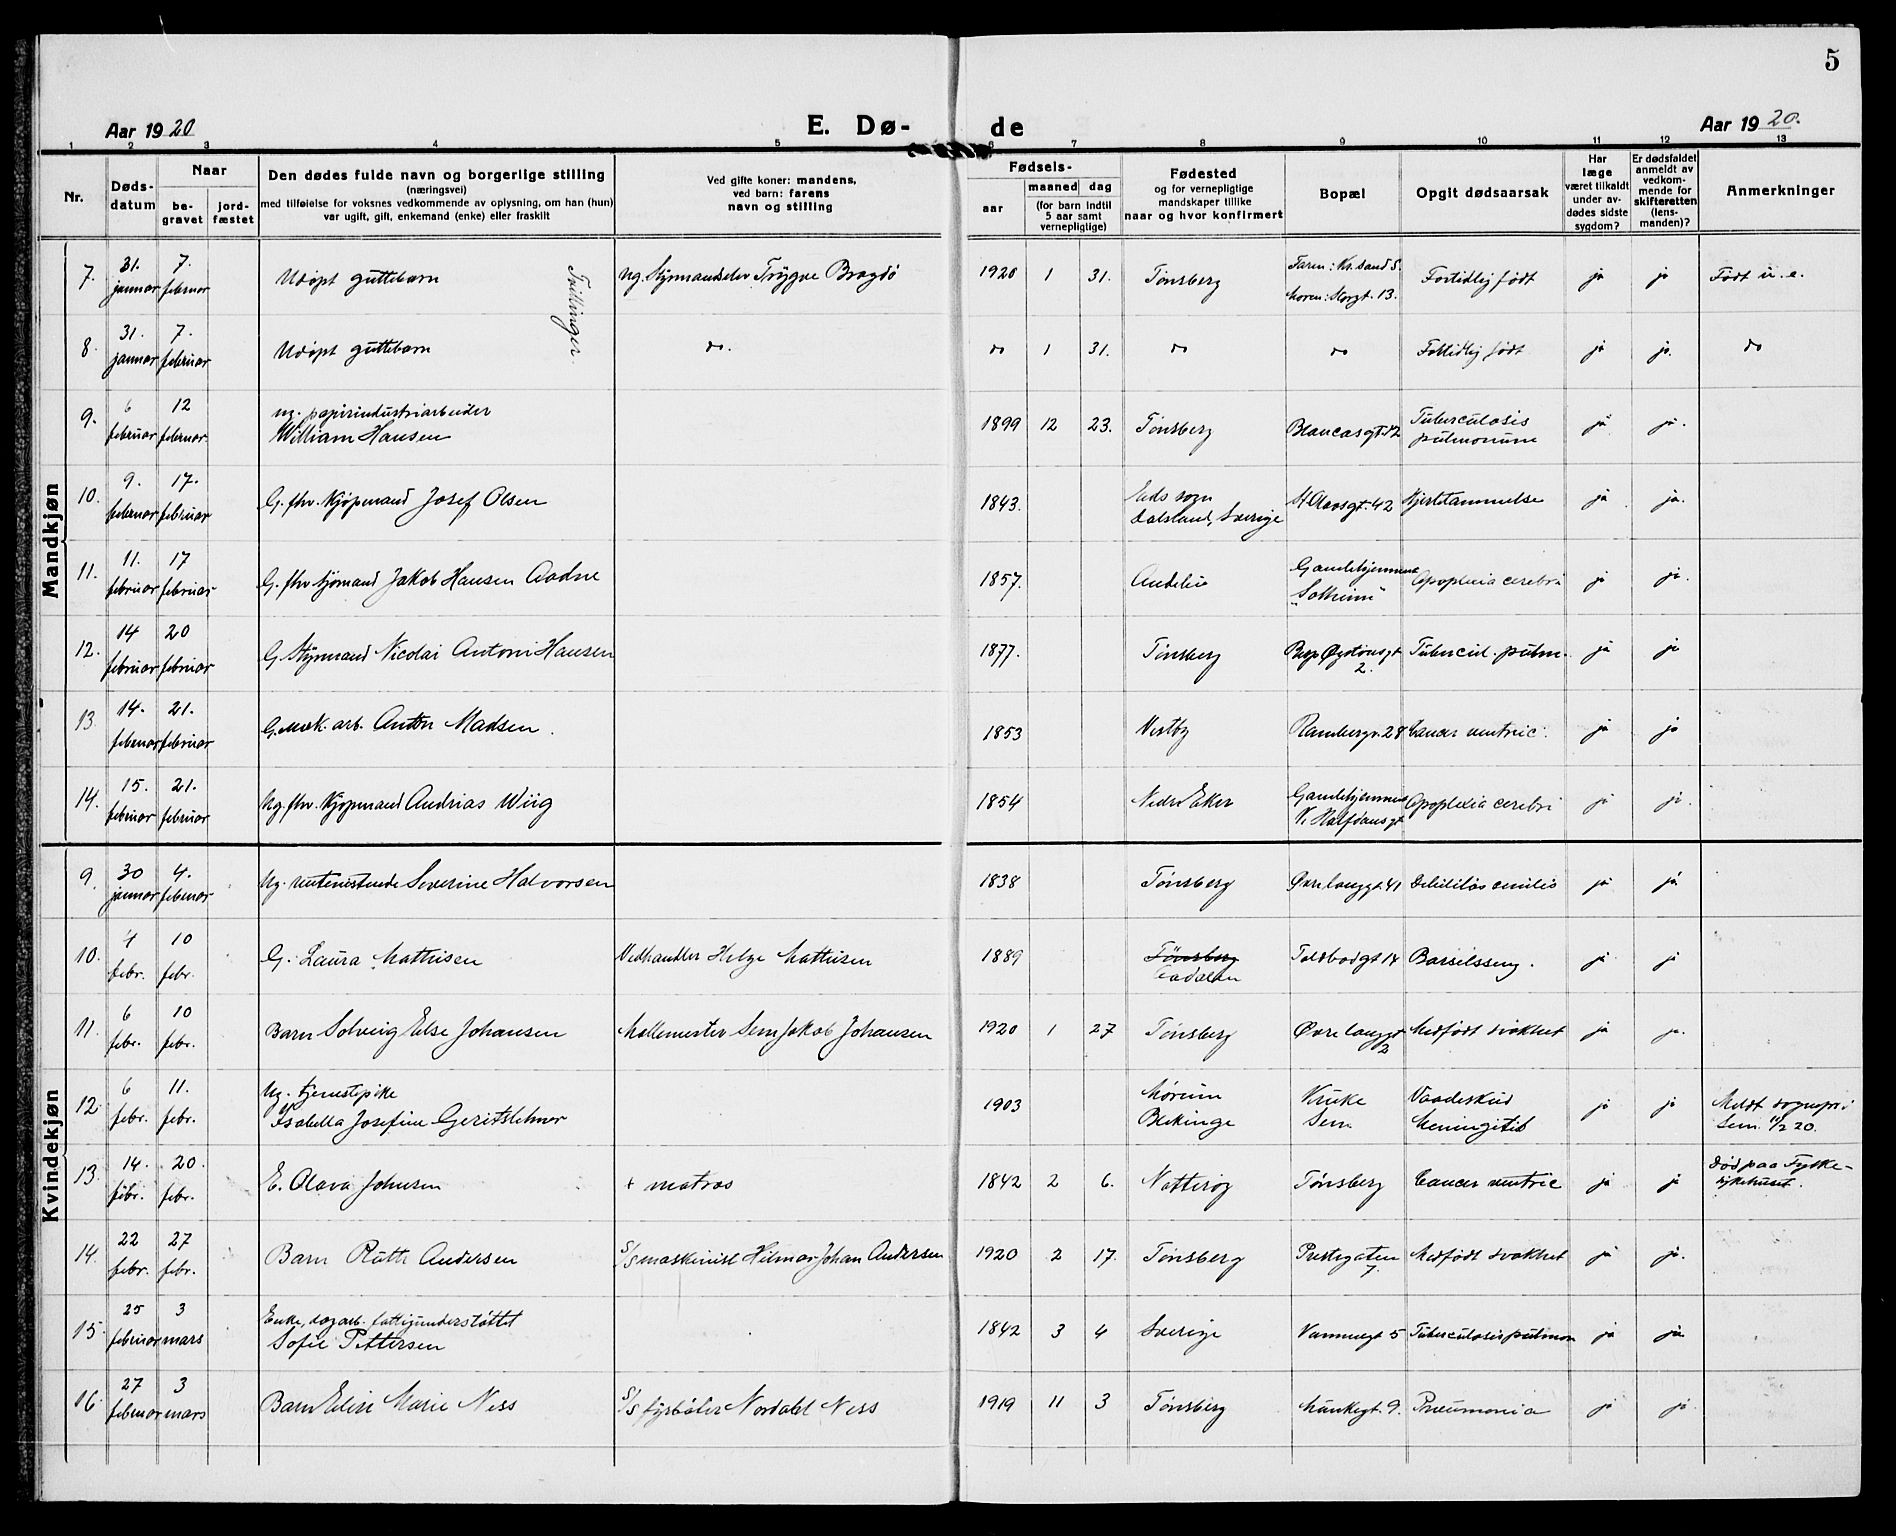 5
Aar 1920
E. Dø-
de
Aar 1920.
1 2 3 4 5 6 7 8 9 10 11 12 13
Nr.
Døds-
datum
Naar
be-
gravet
jord-
fæstet
Den dødes fulde navn og borgerlige stilling
(næringsvei)
med tilføielse for voksnes vedkommende av oplysning, om han (hun)
var ugift, gift, enkemand (enke) eller fraskilt
Ved gifte koner: mandens,
ved barn: farens
navn og stilling
Fødsels-
aar
maaned dag
(for barn indtil
5 aar samt
vernepligtige)
Fødested
og for vernepligtige
mandskaper tillike
naar og hvor konfirmert
Bopæl
Opgit dødsaarsak
Har
læge
været tilkaldt
under av-
dødes sidste
sygdom?
Er dødsfaldet
anmeldt av
vedkom-
mende for
skifteretten
(lens-
manden)?
Anmerkninger
Mandkjøn
7. 31. januar 7. februar Udøpt guttebarn Ug. Styrmandselev Trygve Bragdö 1920 1 31. Tønsberg Faren: Kr.sand S. Moren: Storgt. 13. Fortidlig født ja ja Født u. e.
Trillinger
8. 31. januar 7. februar Udøpt guttebarn do. do 1 31. do do Fortidlig født ja ja. do
9. 6 februar 12 februar Ug. papirindustriarbeider William Hansen 1899 12 23. Tønsberg Blancasgt. 12 Tuberculosis pulmonum ja ja.
10. 9. februar 17. februar G. fhv. Kjøpmand Josef Olsen 1843. Eds sogn Dalsland, Sverige St Olavsgt. 42 Hjertelammelse ja ja.
11. 11. februar 17 februar G. fhv sjømand Jakob Hansen Aadne 1857. Andebu Gamlehjemmet "Solheim" Apoplexia cerebri ja ja.
12. 14 februar 20 februar G. Styrmand Nicolai Antoni Hansen 1877. Tønsberg Øysteinsgt 2. Tubercul. pulm. ja ja
13. 14. februar 21. februar G. mek. arb. Anton Madsen. 1853 Vestby Rambergv. 28 Cancer ventric. ja ja
14. 15. februar 21. februar Ug. fhv. Kjøpmand Andreas Wiig 1854 Nedre Eker Gamlehjemmet Halfdansgt Apoplexia cerebri ja ja.
Kvindekjøn
9. 30 januar 4. februar Ug. rentenistende Severine Halvorsen 1838 Tønsberg Øvre langgt. 41 Debilitas senilis ja ja
10. 4 febr. 10 febr. G. Laura Mathisen Vedhandler Helge Mathisen 1889 Tønsberg Aadalen Toldbodgt 14 Barselsseng. ja ja
11. 6 febr. 10 febr. Barn Solveig Else Johansen Møllemester Sem Jakob Johansen 1920 1 27 Tønsberg Øvre langgt 2 Medfødt svakhet ja ja.
12 6 febr. 11. febr. Ug. tjenestepike Isabella Josefine 1903 Mørum Blekinge Sem Vaadeskud Meningitis ja ja Meldt sognepr i Sem. 11/2 20.
13. 14. febr. 20. febr. E. Olava Johnsen + matros 1842 2 6. Nøtterøy Tønsberg Cancer ventric ja ja Død paa Fylke-sykehuset.
14. 22 febr. 27 febr. Barn Ruth Andersen S/S maskinist Hilmar Johan Andersen 1920 2 17. Tønsberg Prestegaten 7. Medfødt svakhet ja ja.
15. 25 februar 3 mars Enke, dagarb. fattigunderstøttet Sofie Pettersen 1842 3 4 Sverige 5 Tuberculosis pulmon ja ja
16. 27 februar 3 mars Barn Elin Marie Ness S/S fyrbøter Nordahl Ness 1919 11 3 Tønsberg Munkegt. 9. Pneumonia ja ja.